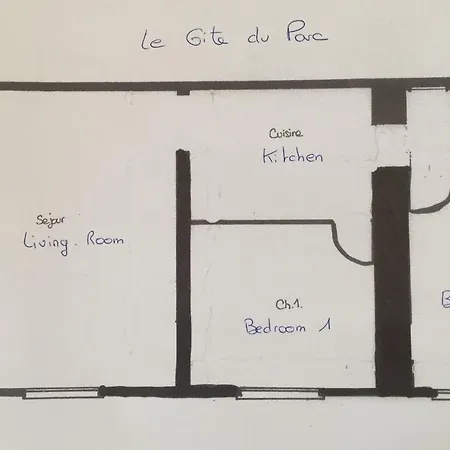 Le Gîte du Parc
Cuisine
Kitchen
Sejour
Living. Room
Ch.1.
Bedroom 1
B